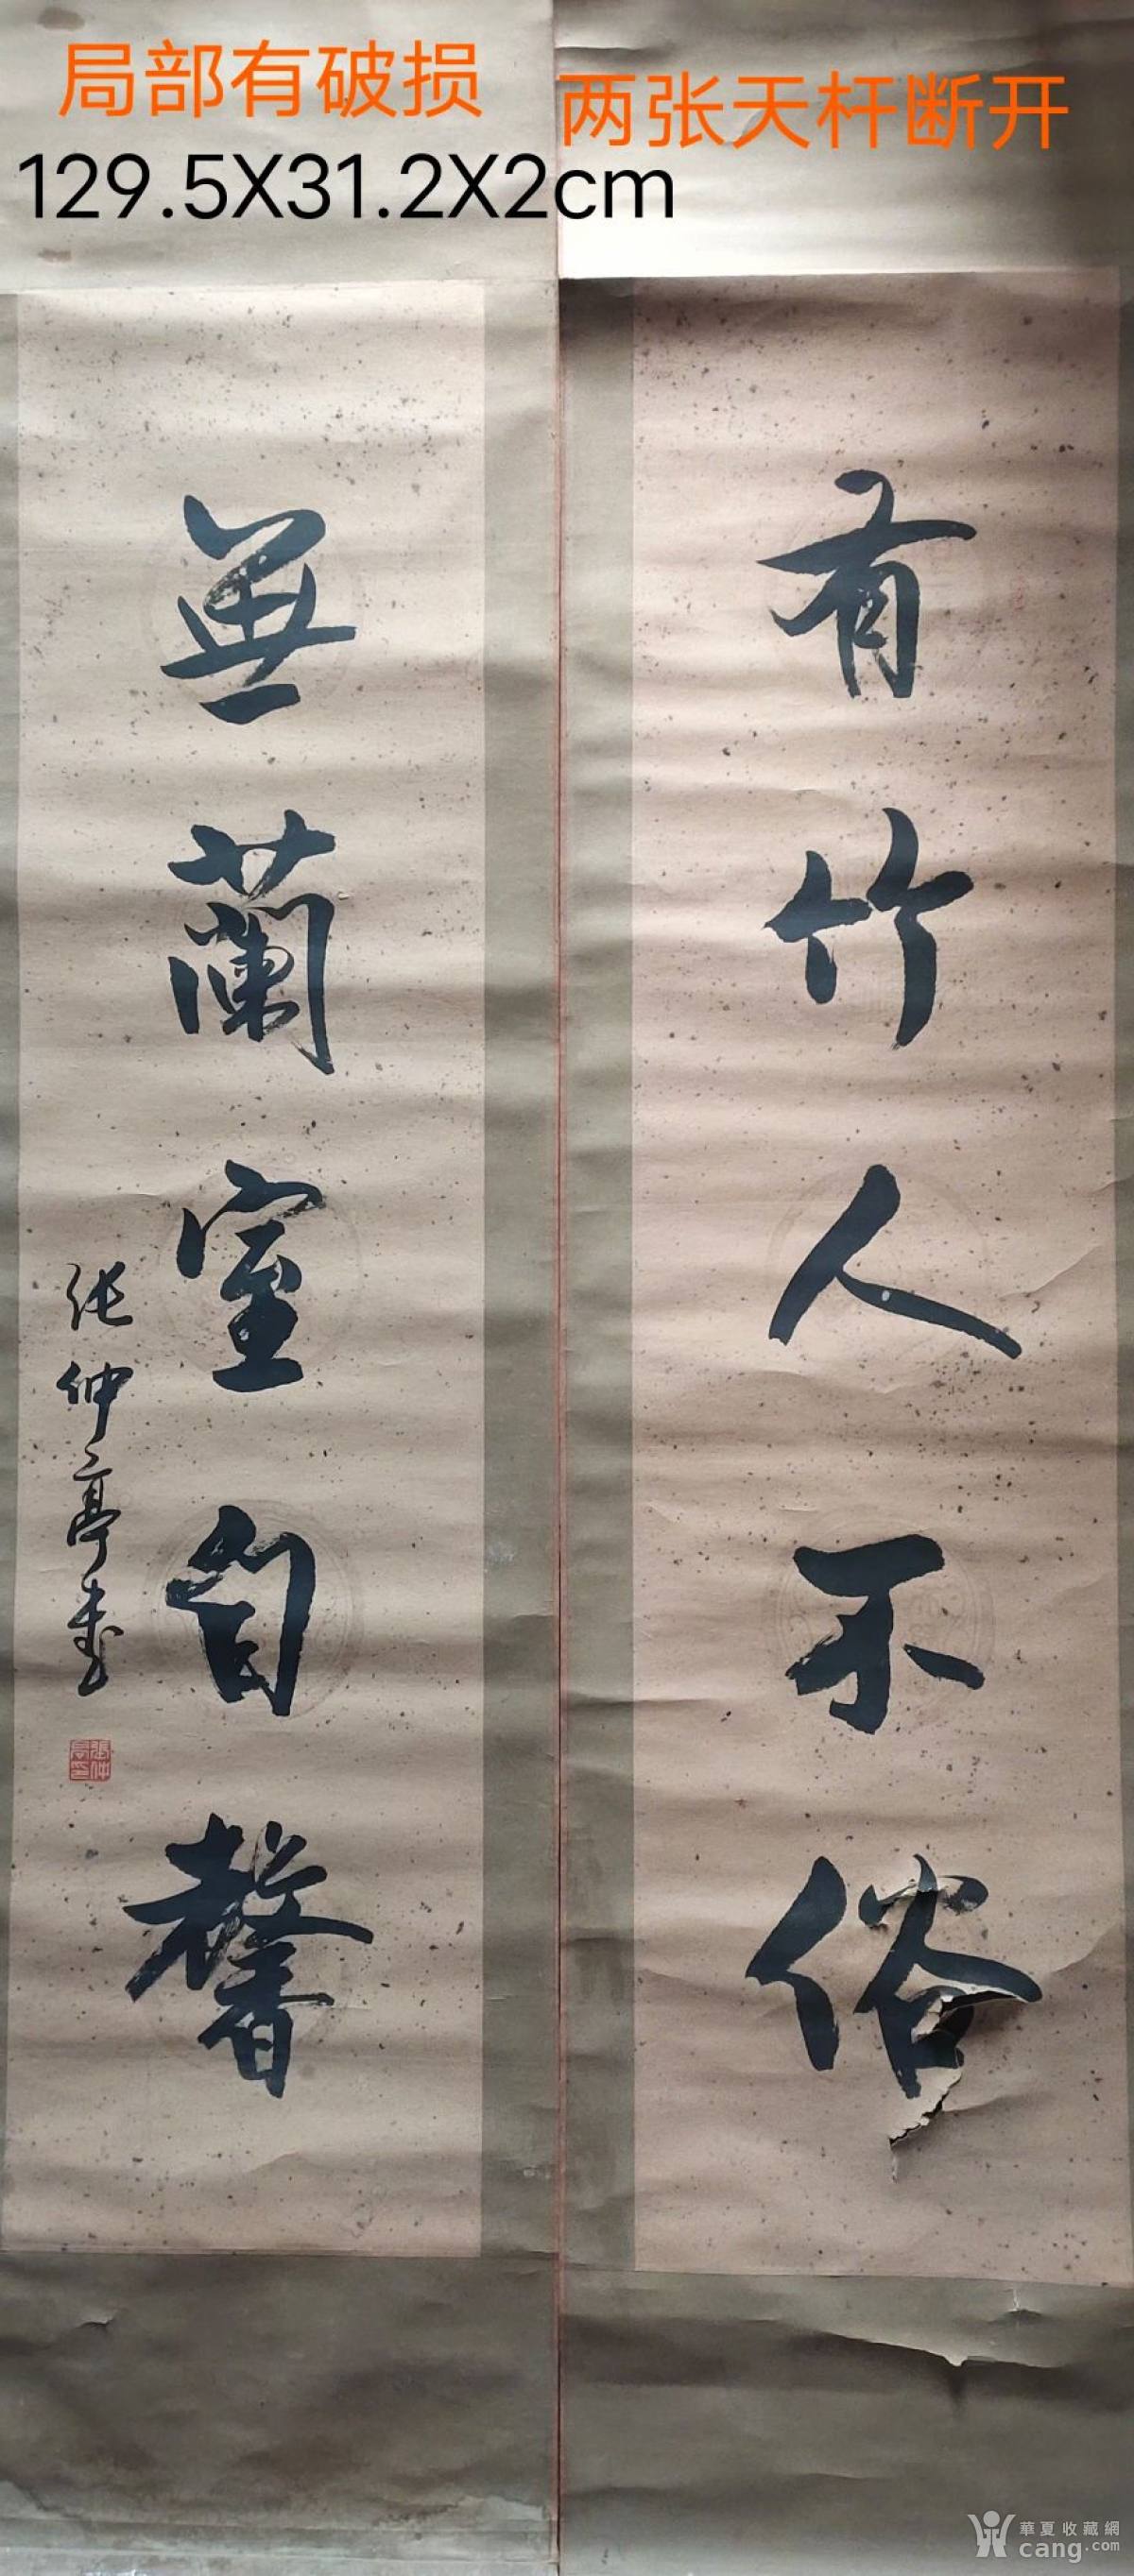 局部有破损
两张天杆断开
129.5X31.2X2cm
有竹人不俗
無蘭室自馨
张仲亭书
華夏收藏網
cang.com